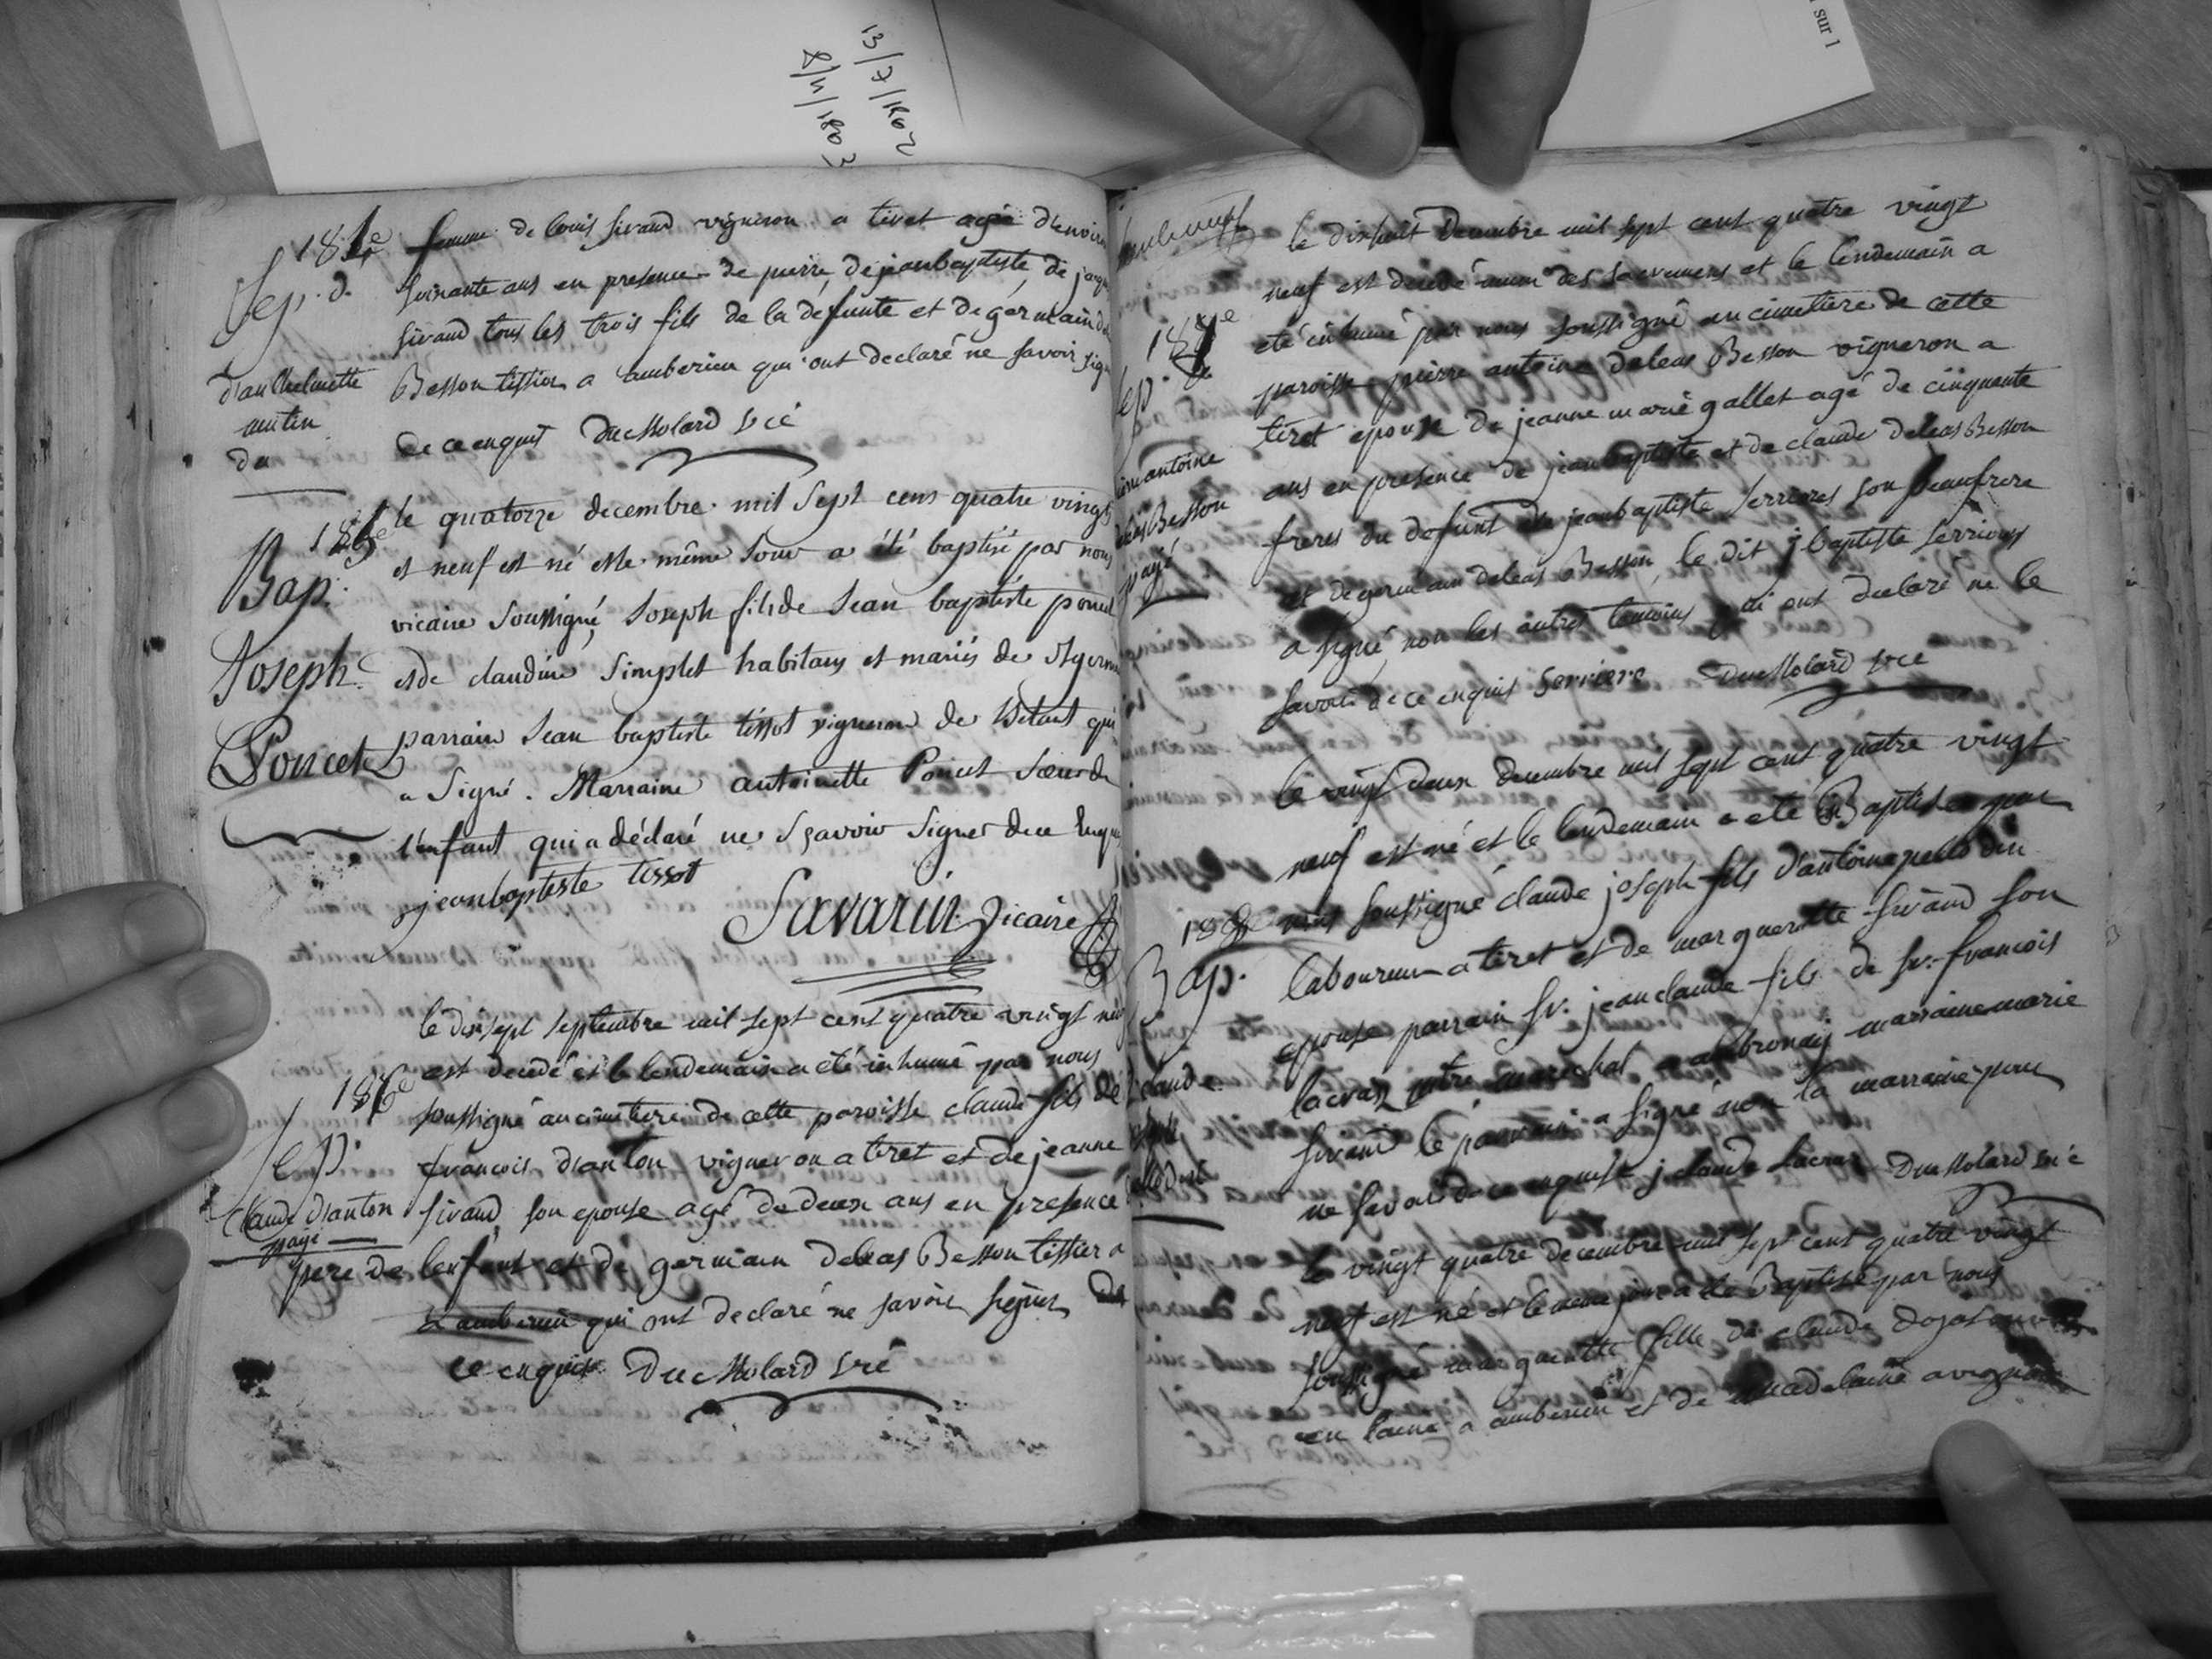 sur 1
13/7/1802
8/4/1803
184e
Sep. d.
d'anthelmette
femme de louis sivand vigneron a tiret agée d'enviro
soixante ans en presence de pierre, de jeanbaptiste, de jaq
sivand tous les trois fils de la défunte et de germain
Besson tissier a amberieu qui ont declaré ne savoir sig
de ce enquis Ducmolard vce
185e
Bap.
Joseph
Poncet
le quatorze decembre mil sept cens quatre vingts
et neuf est né et le même Jour a été baptisé par nous
vicaire soussigné, Joseph fils de Jean baptiste poncet
et de claudine Simplet habitans et mariés de
parrain Jean baptiste tissot vigneron de qui
a signé. Marraine antoinette Poncet soeur de
l'enfant qui a déclaré ne sçavoir signer de ce Enq
jeanbaptiste tissot
Savarin Vicaire
186e
Sep.
Claude d'anton
payé
le dix sept septembre mil sept cent quatre vingt
est decedé et le lendemain a eté inhumé par nous
soussigné au cimetiere de cette paroisse claude fils de
francois d'anton vigneron a tiret et de jeanne
sivand son epouse agé de deux ans en presence
pere de lenfant et de germain deleas Besson tissier a
amberieu qui ont declaré ne savoir signer de
ce enquis Ducmolard vce
le dixhuit decembre mil sept cent quatre vingt
neuf est decedé muni des sacremens et le lendemain a
eté inhumé par nous soussigné au cimetiere de cette
paroisse pierre antoine deleas Besson vigneron a
tiret epoux de jeanne marie gallet agé de cinquante
ans en presence de jeanbaptiste et de claude deleas Besson
freres du defunt de jeanbaptiste serrieres son beaufrere
et de germain deleas Besson, le dit j baptiste serrieres
a signé non les autres temoins qui ont declaré ne le
savoir de ce enquis Serriere Ducmolard vce
187e
Sep.
antoine
Besson
payé
le vingt deux decembre mil sept cent quatre vingt
neuf est né et le lendemain a eté Baptisé par
nous soussigné claude joseph fils d'antoine pellodin
laboureur a tiret et de marguerite sivand son
epouse parrain sr. jean claude fils de sr. francois
lacraz mtre marechal a ambronay marraine marie
sivand le parrain a signé non la marraine pour
ne savoir de ce enquise j claude lacraz Ducmolard vce
188e
Bap.
claude
le vingt quatre decembre mil sept cent quatre vingt
neuf est né et le meme jour a eté Baptisé par nous
soussigné marguerite fille de claude
en laine a amberieu et de madelaine avignon